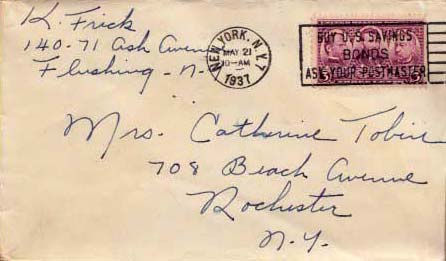 K. Frick
140-71 Ash Avenue
Flushing - N.Y.
NEW YORK, N.Y. 7
MAY 21
10-AM
1937
BUY U.S. SAVINGS
BONDS
ASK YOUR POSTMASTER
Mrs. Catherine Tobin
708 Beach Avenue
Rochester
N.Y.